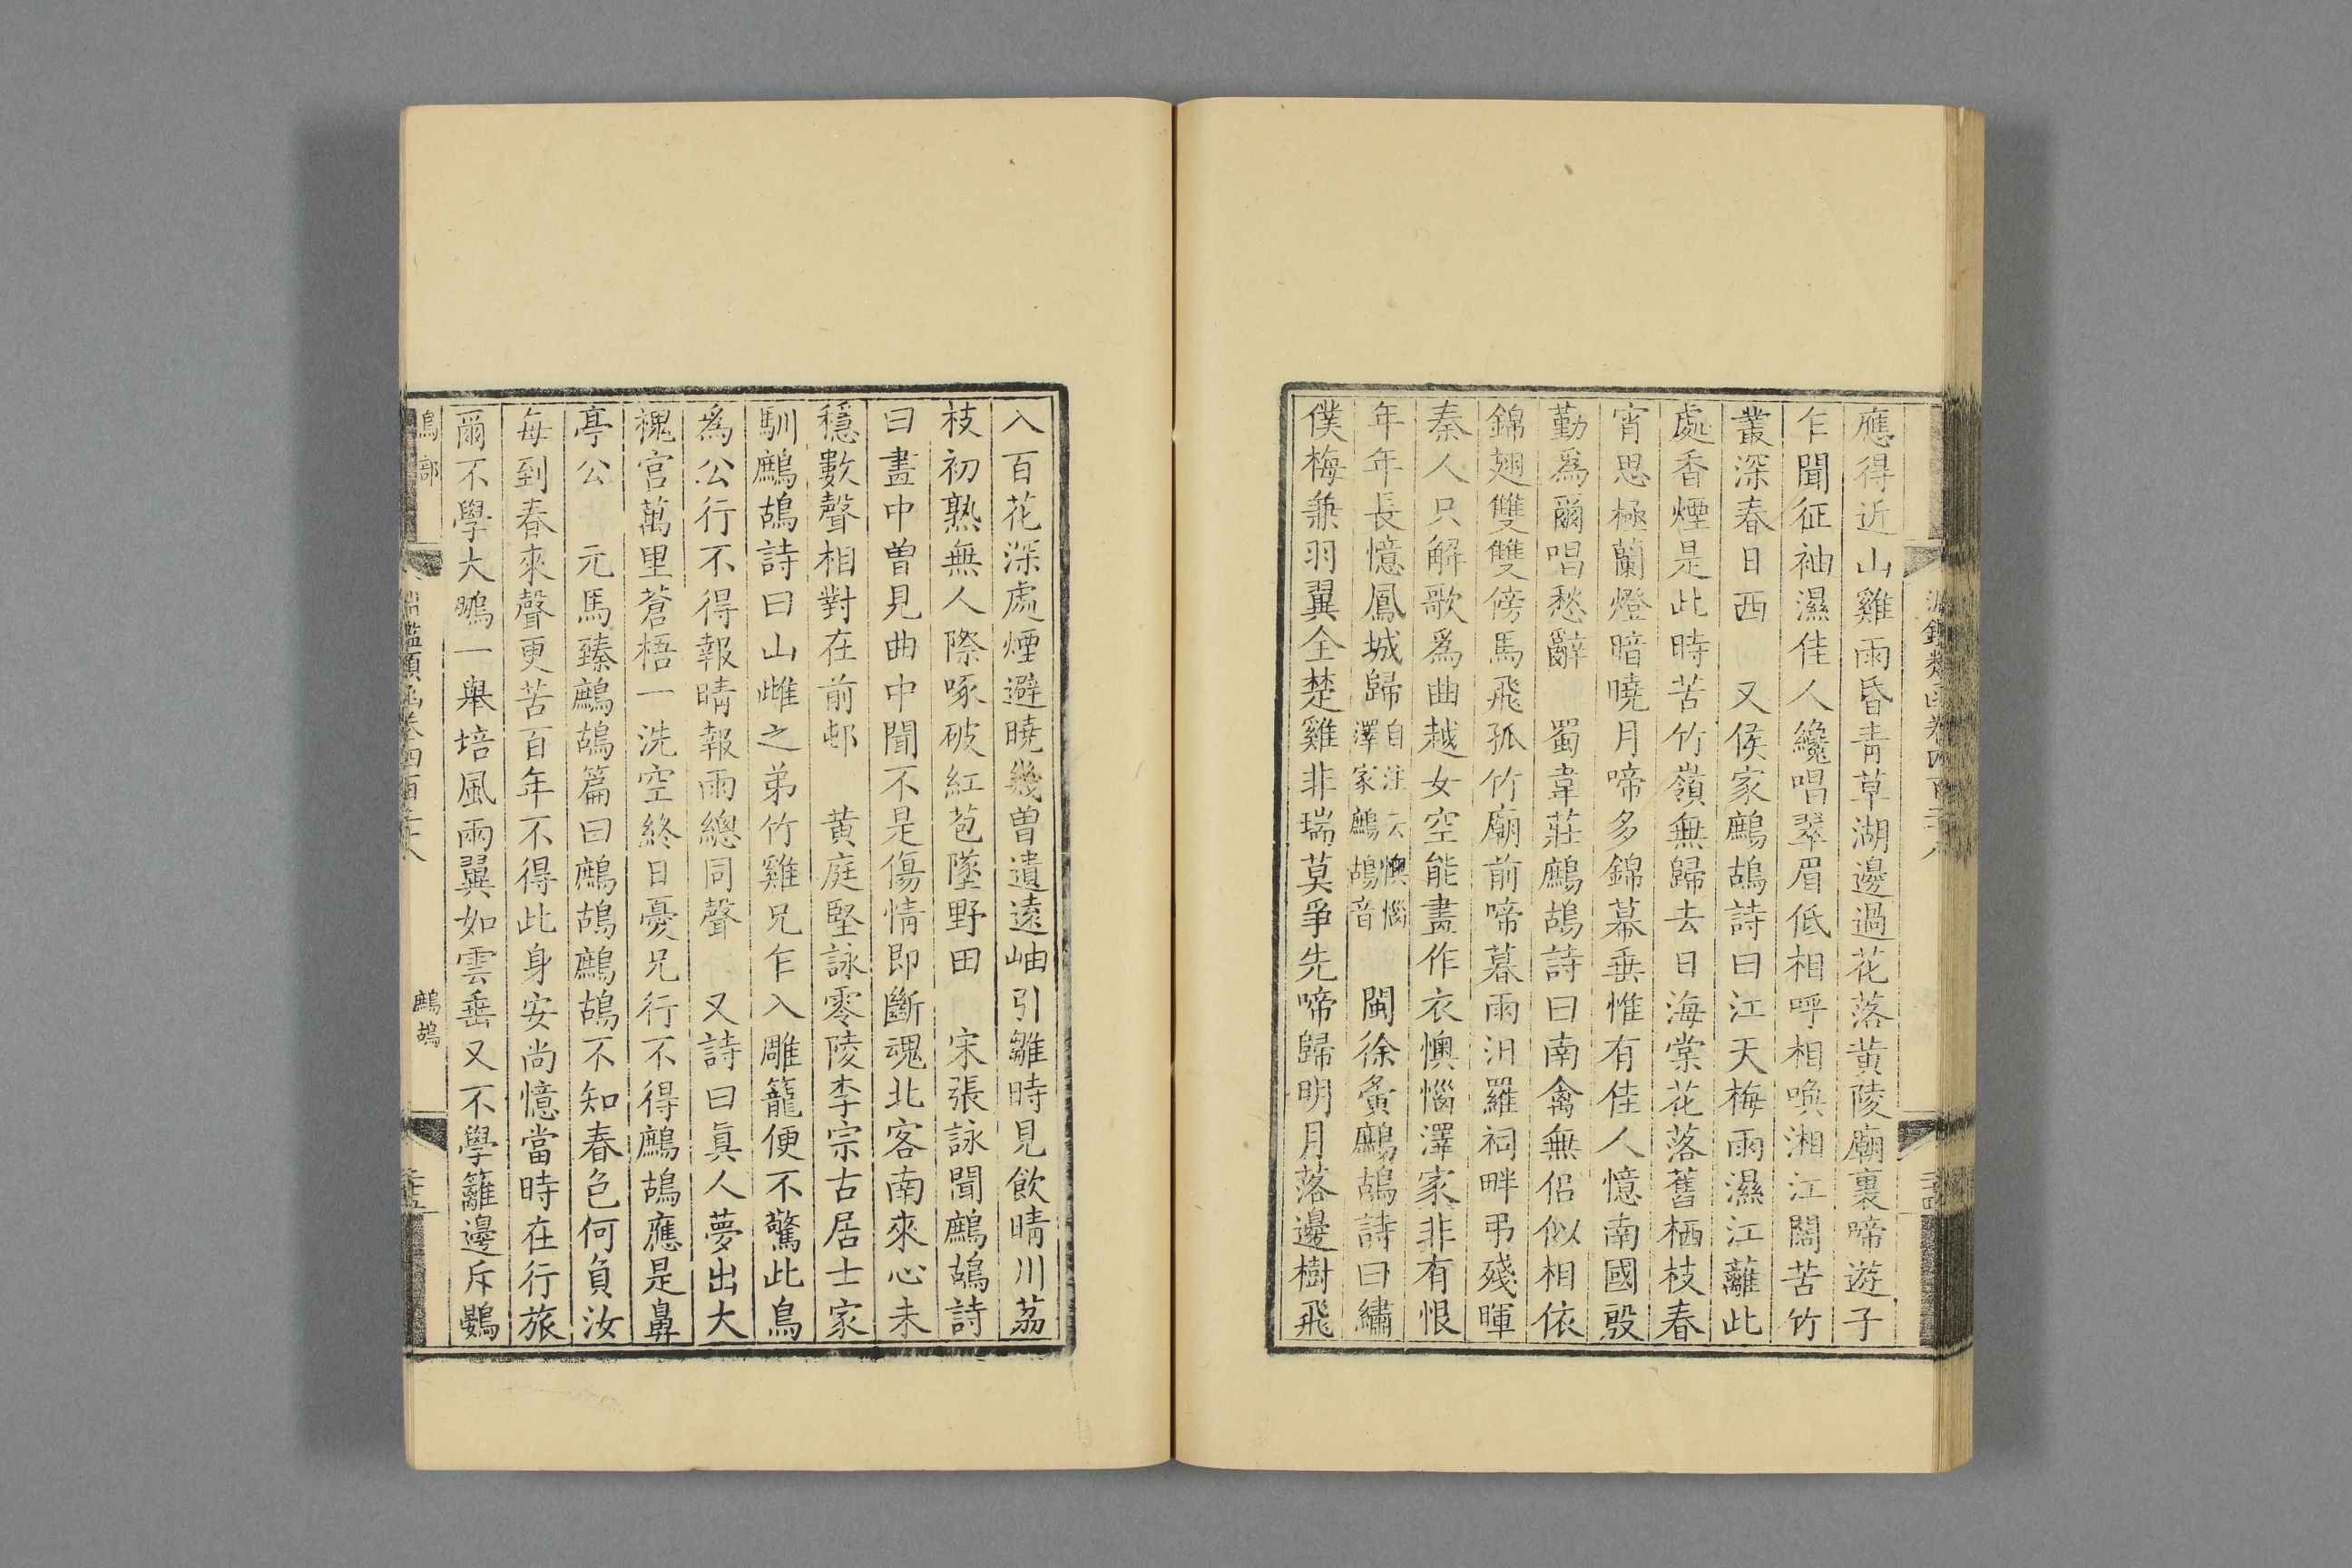 應得近山雞雨昏青草湖邊過花落黃陵廟裏啼遊子
乍聞征袖濕佳人纔唱翠眉低相呼相喚湘江闊苦竹
叢深春日西 又侯家鷓鴣詩曰江天梅雨濕江蘺此
處香煙是此時苦竹嶺無歸去日海棠花落舊栖枝春
宵思極蘭燈暗曉月啼多錦幕垂惟有佳人憶南國殷
勤為爾唱愁辭 蜀韋莊鷓鴣詩曰南禽無侶似相依
錦翅雙雙傍馬飛孤竹廟前啼暮雨汨羅祠畔弔殘暉
秦人只解歌為曲越女空能畫作衣懊惱澤家非有恨
年年長憶鳳城歸
自注云懊惱
澤家鷓鴣音
閩徐夤鷓鴣詩曰繡
僕梅兼羽翼全楚雞非瑞莫爭先啼歸明月落邊樹飛
入百花深處煙避曉幾曾遺遠岫引雛時見飲晴川荔
枝初熟無人際啄破紅苞墜野田 宋張詠聞鷓鴣詩
曰畫中曾見曲中聞不是傷情即斷魂北客南來心未
穩數聲相對在前邨 黃庭堅詠零陵李宗古居士家
馴鷓鴣詩曰山雌之弟竹雞兄乍入雕籠便不驚此鳥
為公行不得報晴報雨總同聲 又詩曰眞人夢出大
槐宮萬里蒼梧一洗空終日憂兄行不得鷓鴣應是鼻
亭公 元馬臻鷓鴣篇曰鷓鴣鷓鴣不知春色何負汝
每到春來聲更苦百年不得此身安尚憶當時在行旅
爾不學大鵬一舉培風兩翼如雲垂又不學籬邊斥鷃
鷓鴣